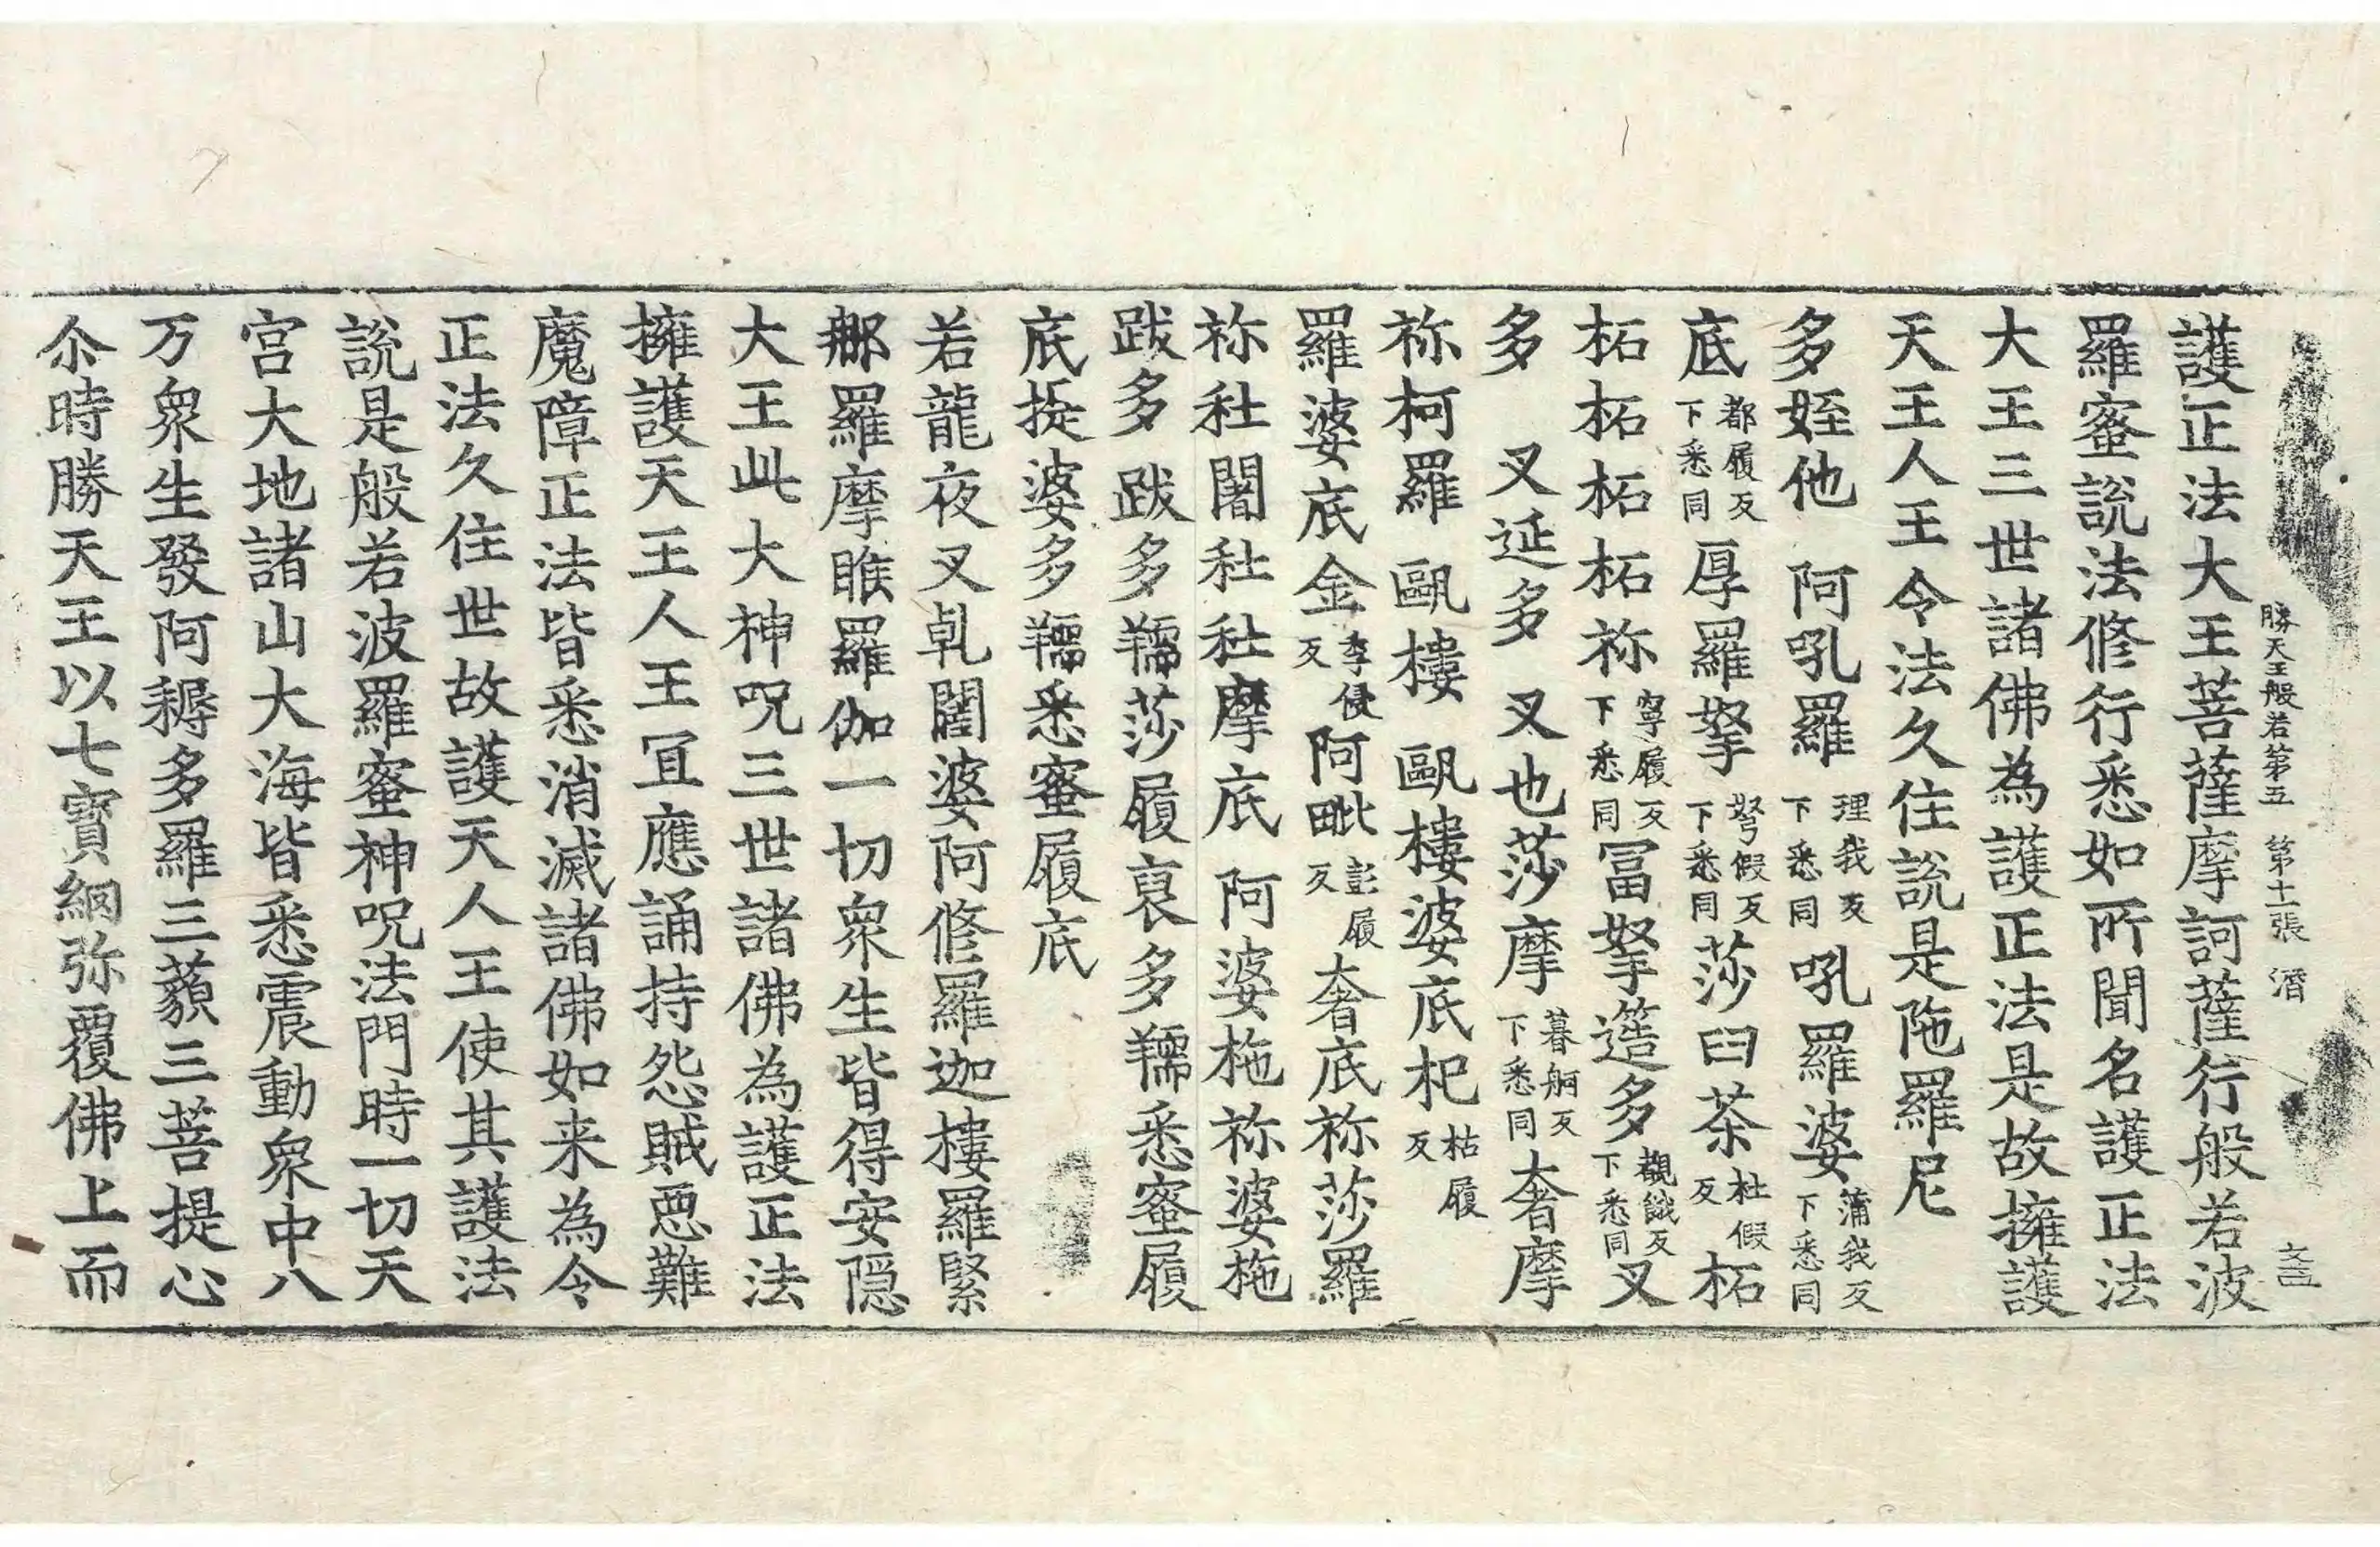 勝天王般若第五　第十一張　潛
護正法大王菩薩摩訶薩行般若波
羅蜜說法修行悉如所聞名護正法
大王三世諸佛為護正法是故擁護
天王人王令法久住說是陁羅尼
多姪他　阿吼羅理我反下悉同吼羅婆蒲我反下悉同
底都履反下悉同厚羅拏弩假反下悉同莎曰茶杜假反柘
柘柘柘柘祢寧履反下悉同冨拏簉多覩餓反下悉同叉
多　叉延多　叉也莎摩暮舸反下悉同奢摩
祢柯羅　甌樓　甌樓婆底杞枯履反
羅婆底金李侵反阿毗彭履反奢底祢莎羅
祢社闍社社摩底　阿婆柂祢婆柂
跋多跋多羺莎履裒多羺悉蜜履
底提婆多羺悉蜜履底
若龍夜叉乹闥婆阿修羅迦樓羅緊
那羅摩睺羅伽一切衆生皆得安隱
大王此大神呪三世諸佛為護正法
擁護天王人王冝應誦持怨賊惡難
魔障正法皆悉消滅諸佛如来為令
正法久住世故護天人王使其護法
說是般若波羅蜜神呪法門時一切天
宮大地諸山大海皆悉震動衆中八
万衆生發阿耨多羅三藐三菩提心
尒時勝天王以七寶網弥覆佛上而